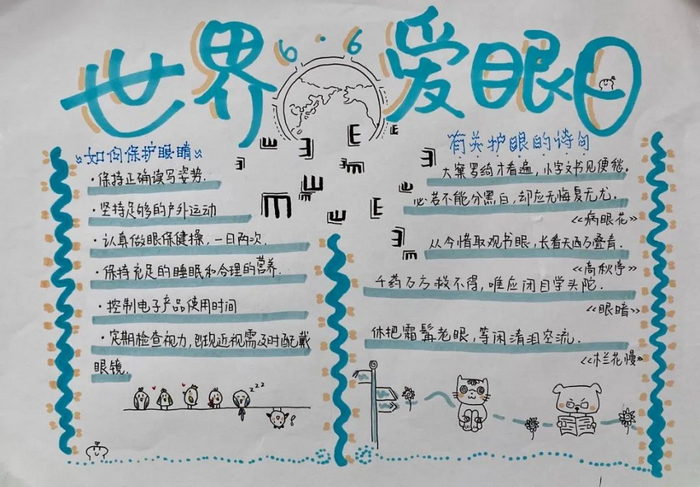 世界 6·6 爱眼日
"如何保护眼睛"
·保持正确读写姿势.
·坚持足够的户外运动
·认真做眼保健操，一日两次.
·保持充足的睡眠和合理的营养.
·控制电子产品使用时间
·定期检查视力，发现近视需及时配戴
眼镜.
zzz
有关护眼的诗句
大窠罗绮才看遍，小字文书见便愁.
必若不能分黑白，却应无悔复无尤.
《病眼花》
从今惜取观书眼，长看天西万叠青.
《高秋亭》
千药万方不得，唯应闭目学头陀.
《眼暗》
休把霜髯老眼，等闲清泪空流.
《木兰花慢》